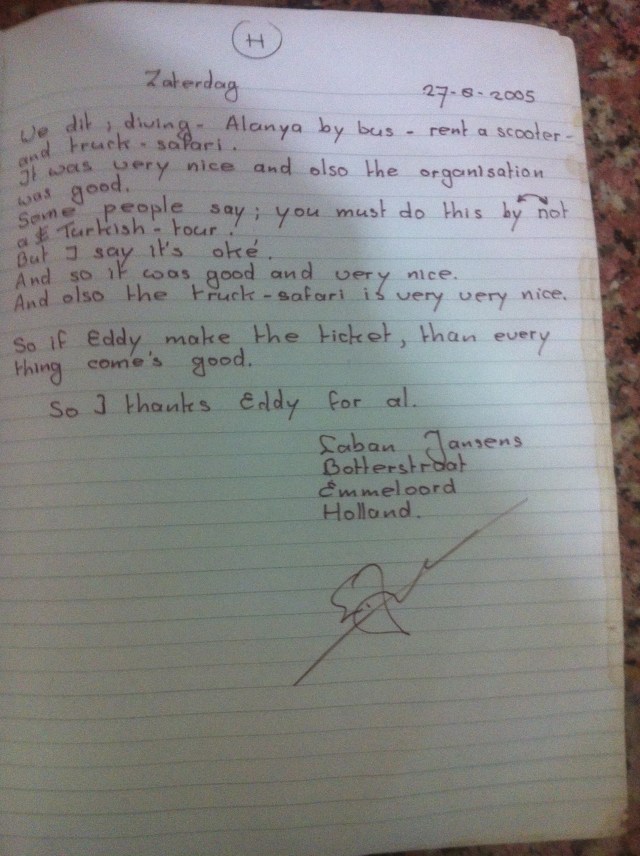 H
Zaterdag 27-8-2005
We dit ; diving - Alanya by bus - rent a scooter -
and truck - safari.
It was very nice and also the organisation
was good.
Some people say ; you must do this by not
a Turkish - tour !
But I say it's oké.
And so it was good and very nice.
And also the truck - safari is very very nice.
So if Eddy make the ticket, than every
thing come's good.
So I thanks Eddy for al.
Saban Jansens
Botterstraat
Emmeloord
Holland.